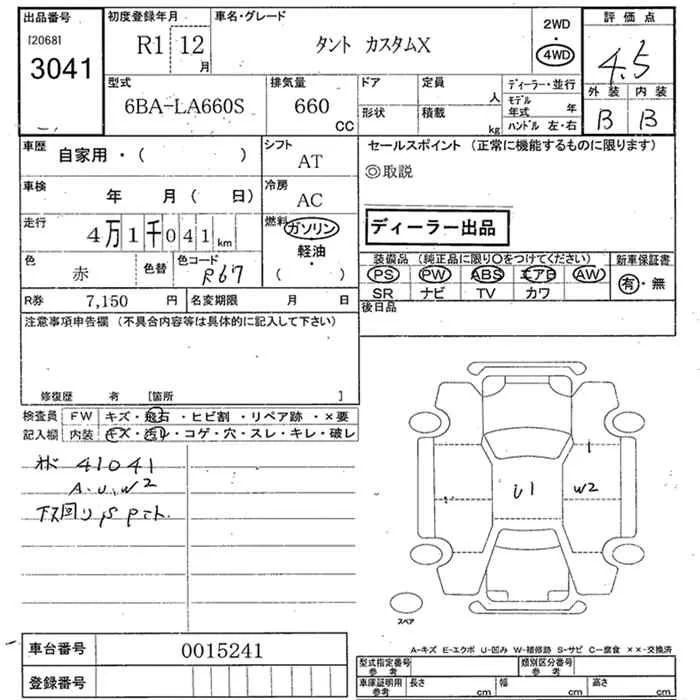 出品番号 初度登録年月 車名・グレード 2WD ・ 4WD 評価点
[2068]
3041 R1 12月 タント カスタムX 4.5
型式 排気量 ドア 定員 人 ディーラー・並行 外装 内装
6BA-LA660S 660 CC 形状 積載 kg モデル年式 年 B B
ハンドル 左・右
車歴 自家用・( ) シフト AT セールスポイント (正常に機能するものに限ります)
◎取説
車検 年 月 ( 日) 冷房 AC
走行 4万1千041km 燃料 ガソリン ディーラー出品
軽油
・
( )
色 赤 色替 色コード R67 装備品 (純正品に限り〇をつけてください) 新車保証書
PS PW ABS エアB AW 有・無
SR ナビ TV カワ
R券 7,150 円 名変期限 月 日 後日品
注意事項申告欄 (不具合内容等は具体的に記入して下さい)
修復歴 有 [箇所 ]
検査員 FW キズ・飛石・ヒビ割・リペア跡・×要
記入欄 内装 キズ・汚レ・コゲ・穴・スレ・キレ・破レ
41041
A.U.W2
下回り
1
U1 W2
スペア
車台番号 0015241
登録番号
A-キズ E-エクボ U-凹み W-補修跡 S-サビ C-腐食 ××-交換済
型式指定番号 参考 類別区分番号 参考
車庫証明用 参考 長さ cm 幅 cm 高さ cm